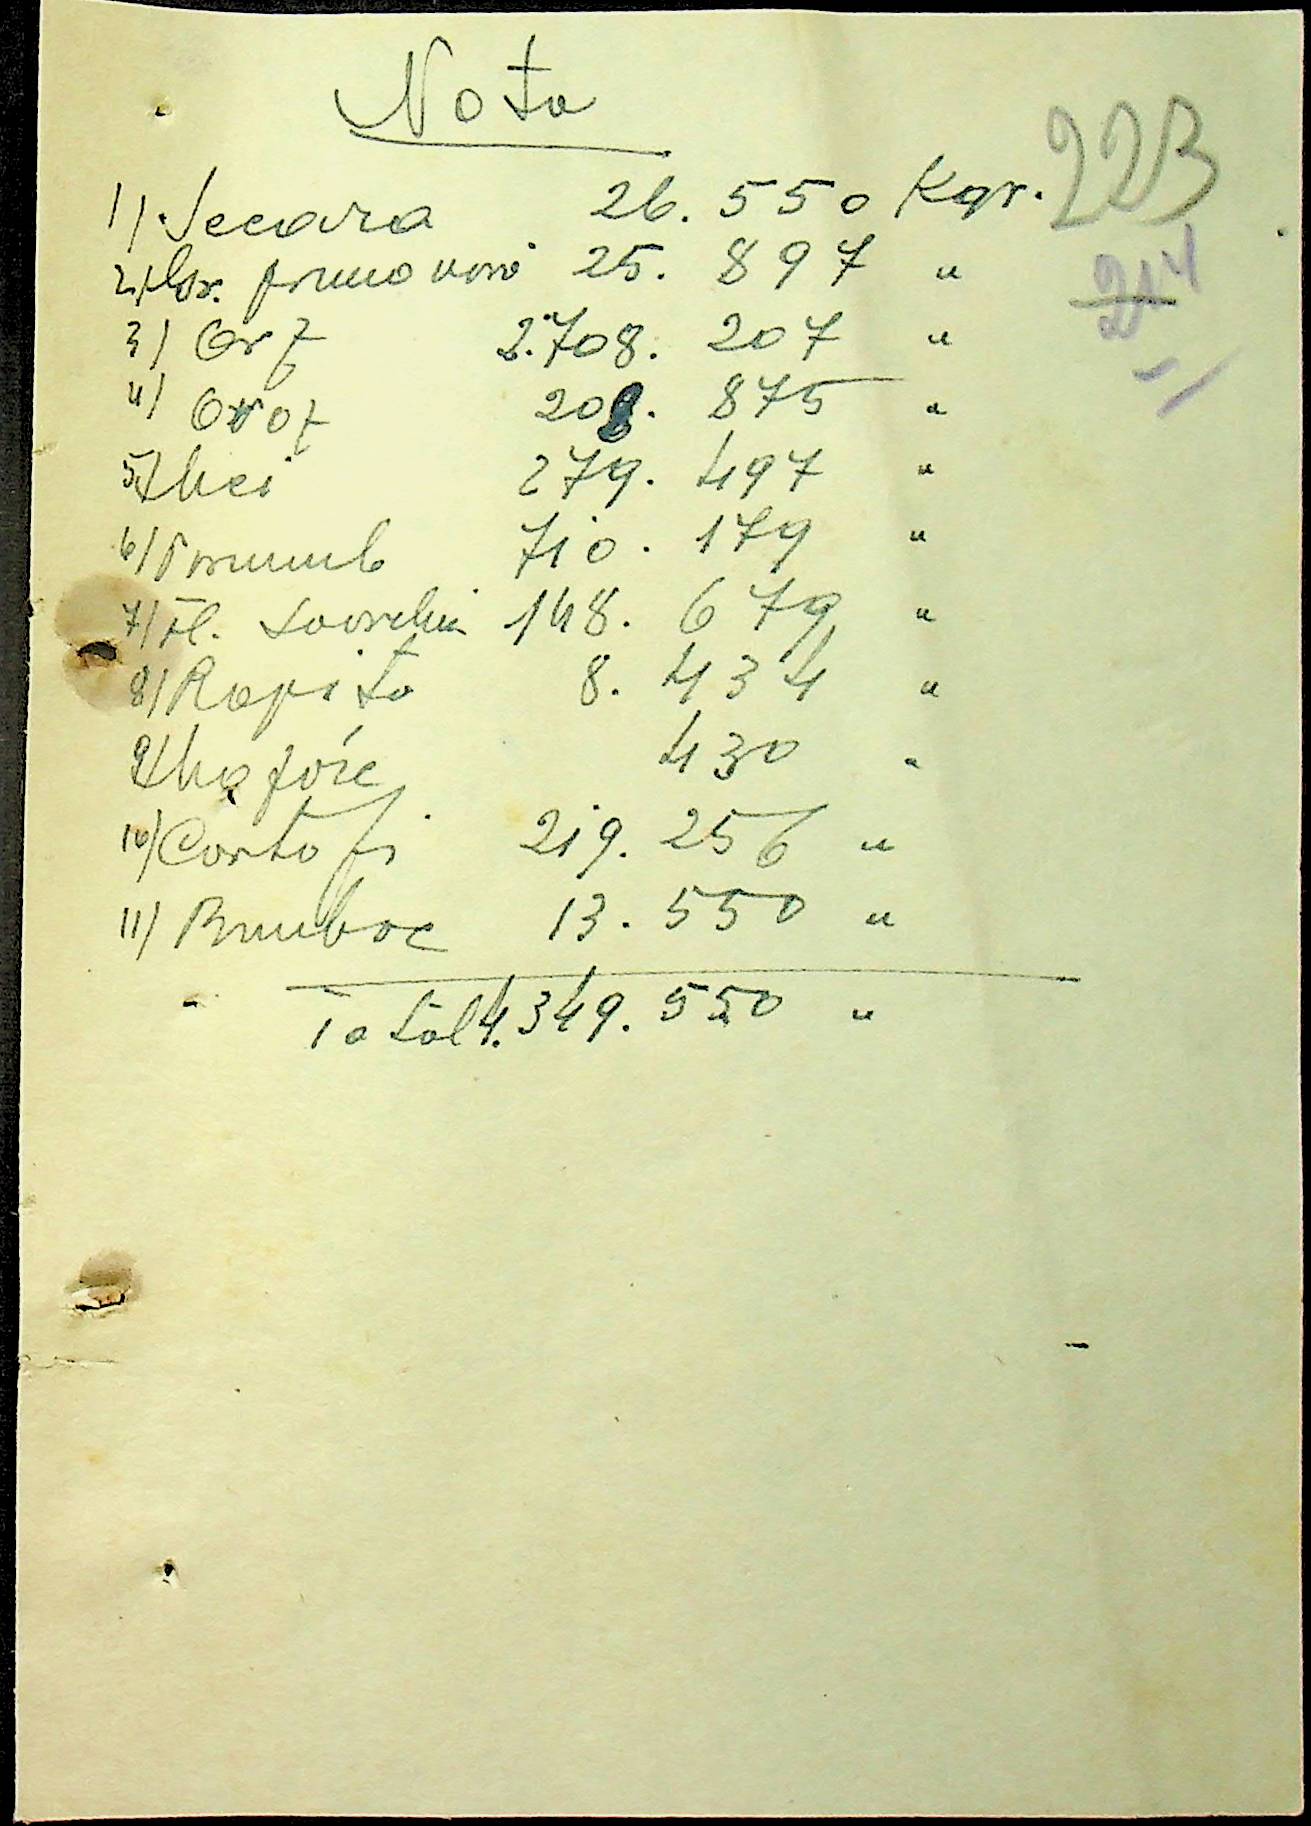 Nota
223
1) Secara 26.550 Kgr.
2) Gr. primavara 25.897 "
214
3) Orz 2.708.207 "
4) Ovoz 208.875 "
5) Mei 279.497 "
6) Porumb 710.179 "
7) Fl. soarelui 148.679 "
8) Rapita 8.434 "
9) Mazăre 430 "
10) Cartofi 219.256 "
11) Bumbac 13.550 "
Total 4.349.550 "